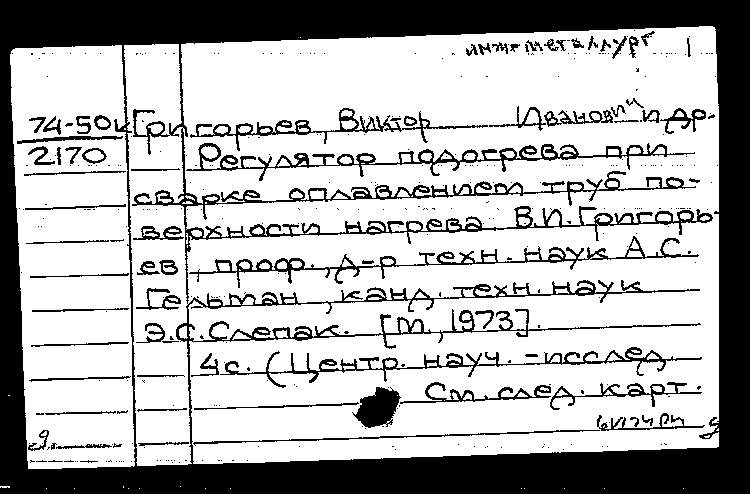 инж-металлург
74-50к Григорьев, Виктор Иванович и др.
2170 Регулятор подогрева при
сварке оплавлением труб по-
верхности нагрева. В.И. Григорь-
ев, проф., д-р техн. наук А.С.
Гельман, канд. техн. наук
Э.С. Слепак. [М., 1973].
4с. (Центр. науч.-исслед.
См. след. карт.